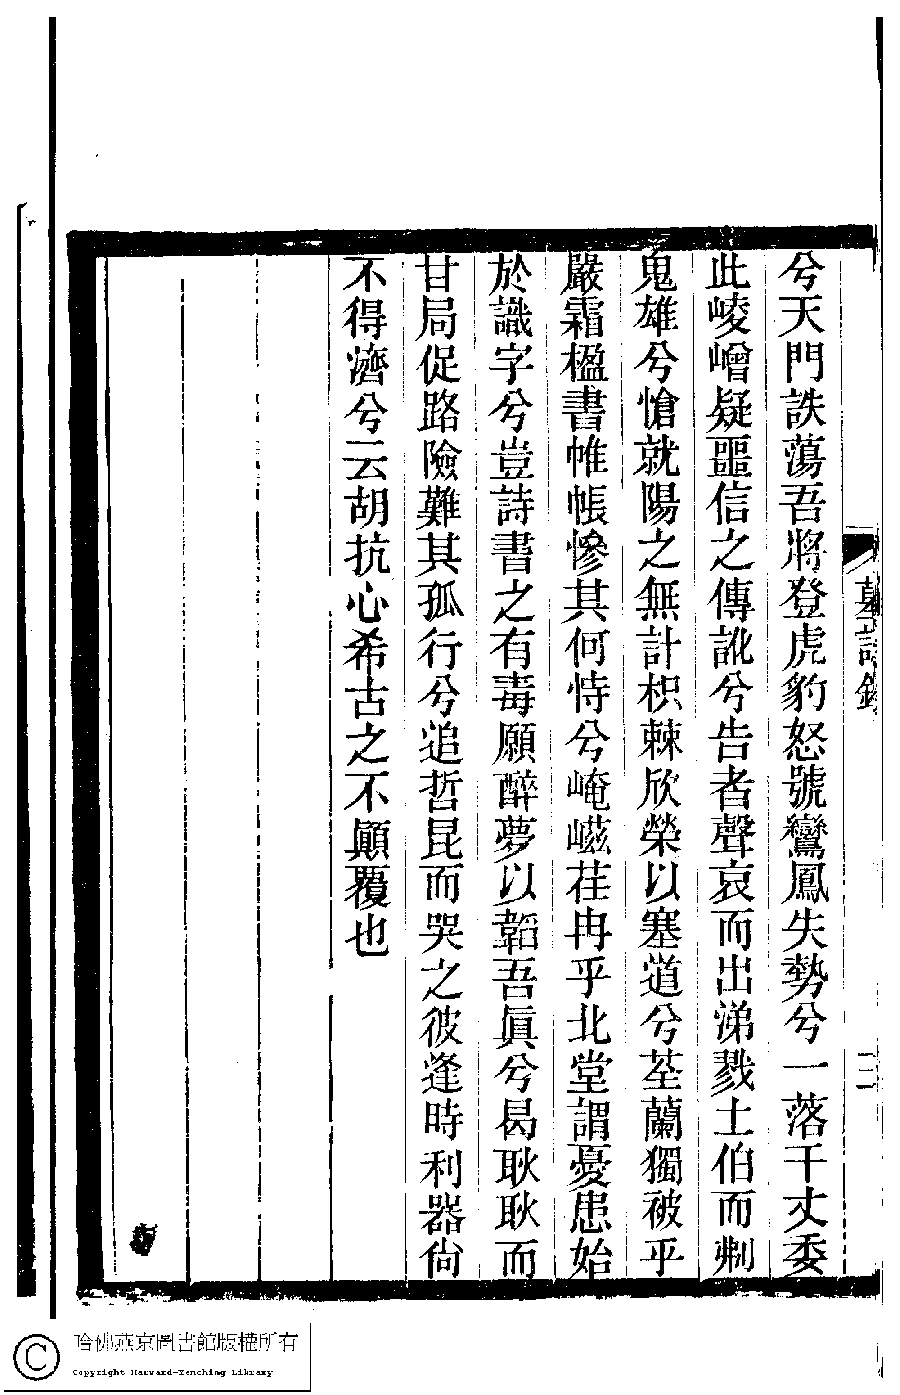 兮天門詄蕩吾將登虎豹怒號鸞鳳失勢兮一落千丈委
此崚嶒疑噩信之傳訛兮告者聲哀而出涕戮土伯而剸
鬼雄兮愴就陽之無計枳棘欣榮以塞道兮荃蘭獨被乎
嚴霜楹書帷帳慘其何恃兮崦嵫荏冉乎北堂謂憂患始
於識字兮豈詩書之有毒願醉夢以韜吾眞兮曷耿耿而
甘局促路險難其孤行兮追哲昆而哭之彼逢時利器尙
不得濟兮云胡抗心希古之不顚覆也
墓誌錄
二
哈佛燕京圖書館版權所有
Copyright Harvard-Yenching Library